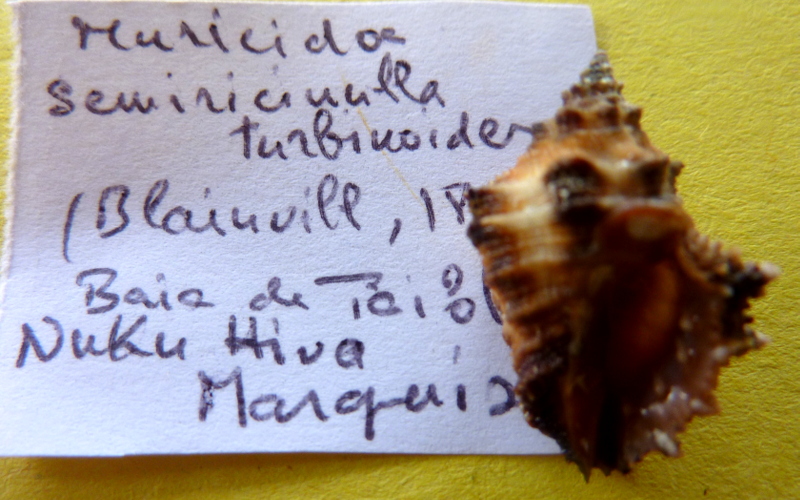 Muricidae
semiricinulla
turbinoides
(Blainvill, 18
Baie de
Nuku Hiva
Marquis